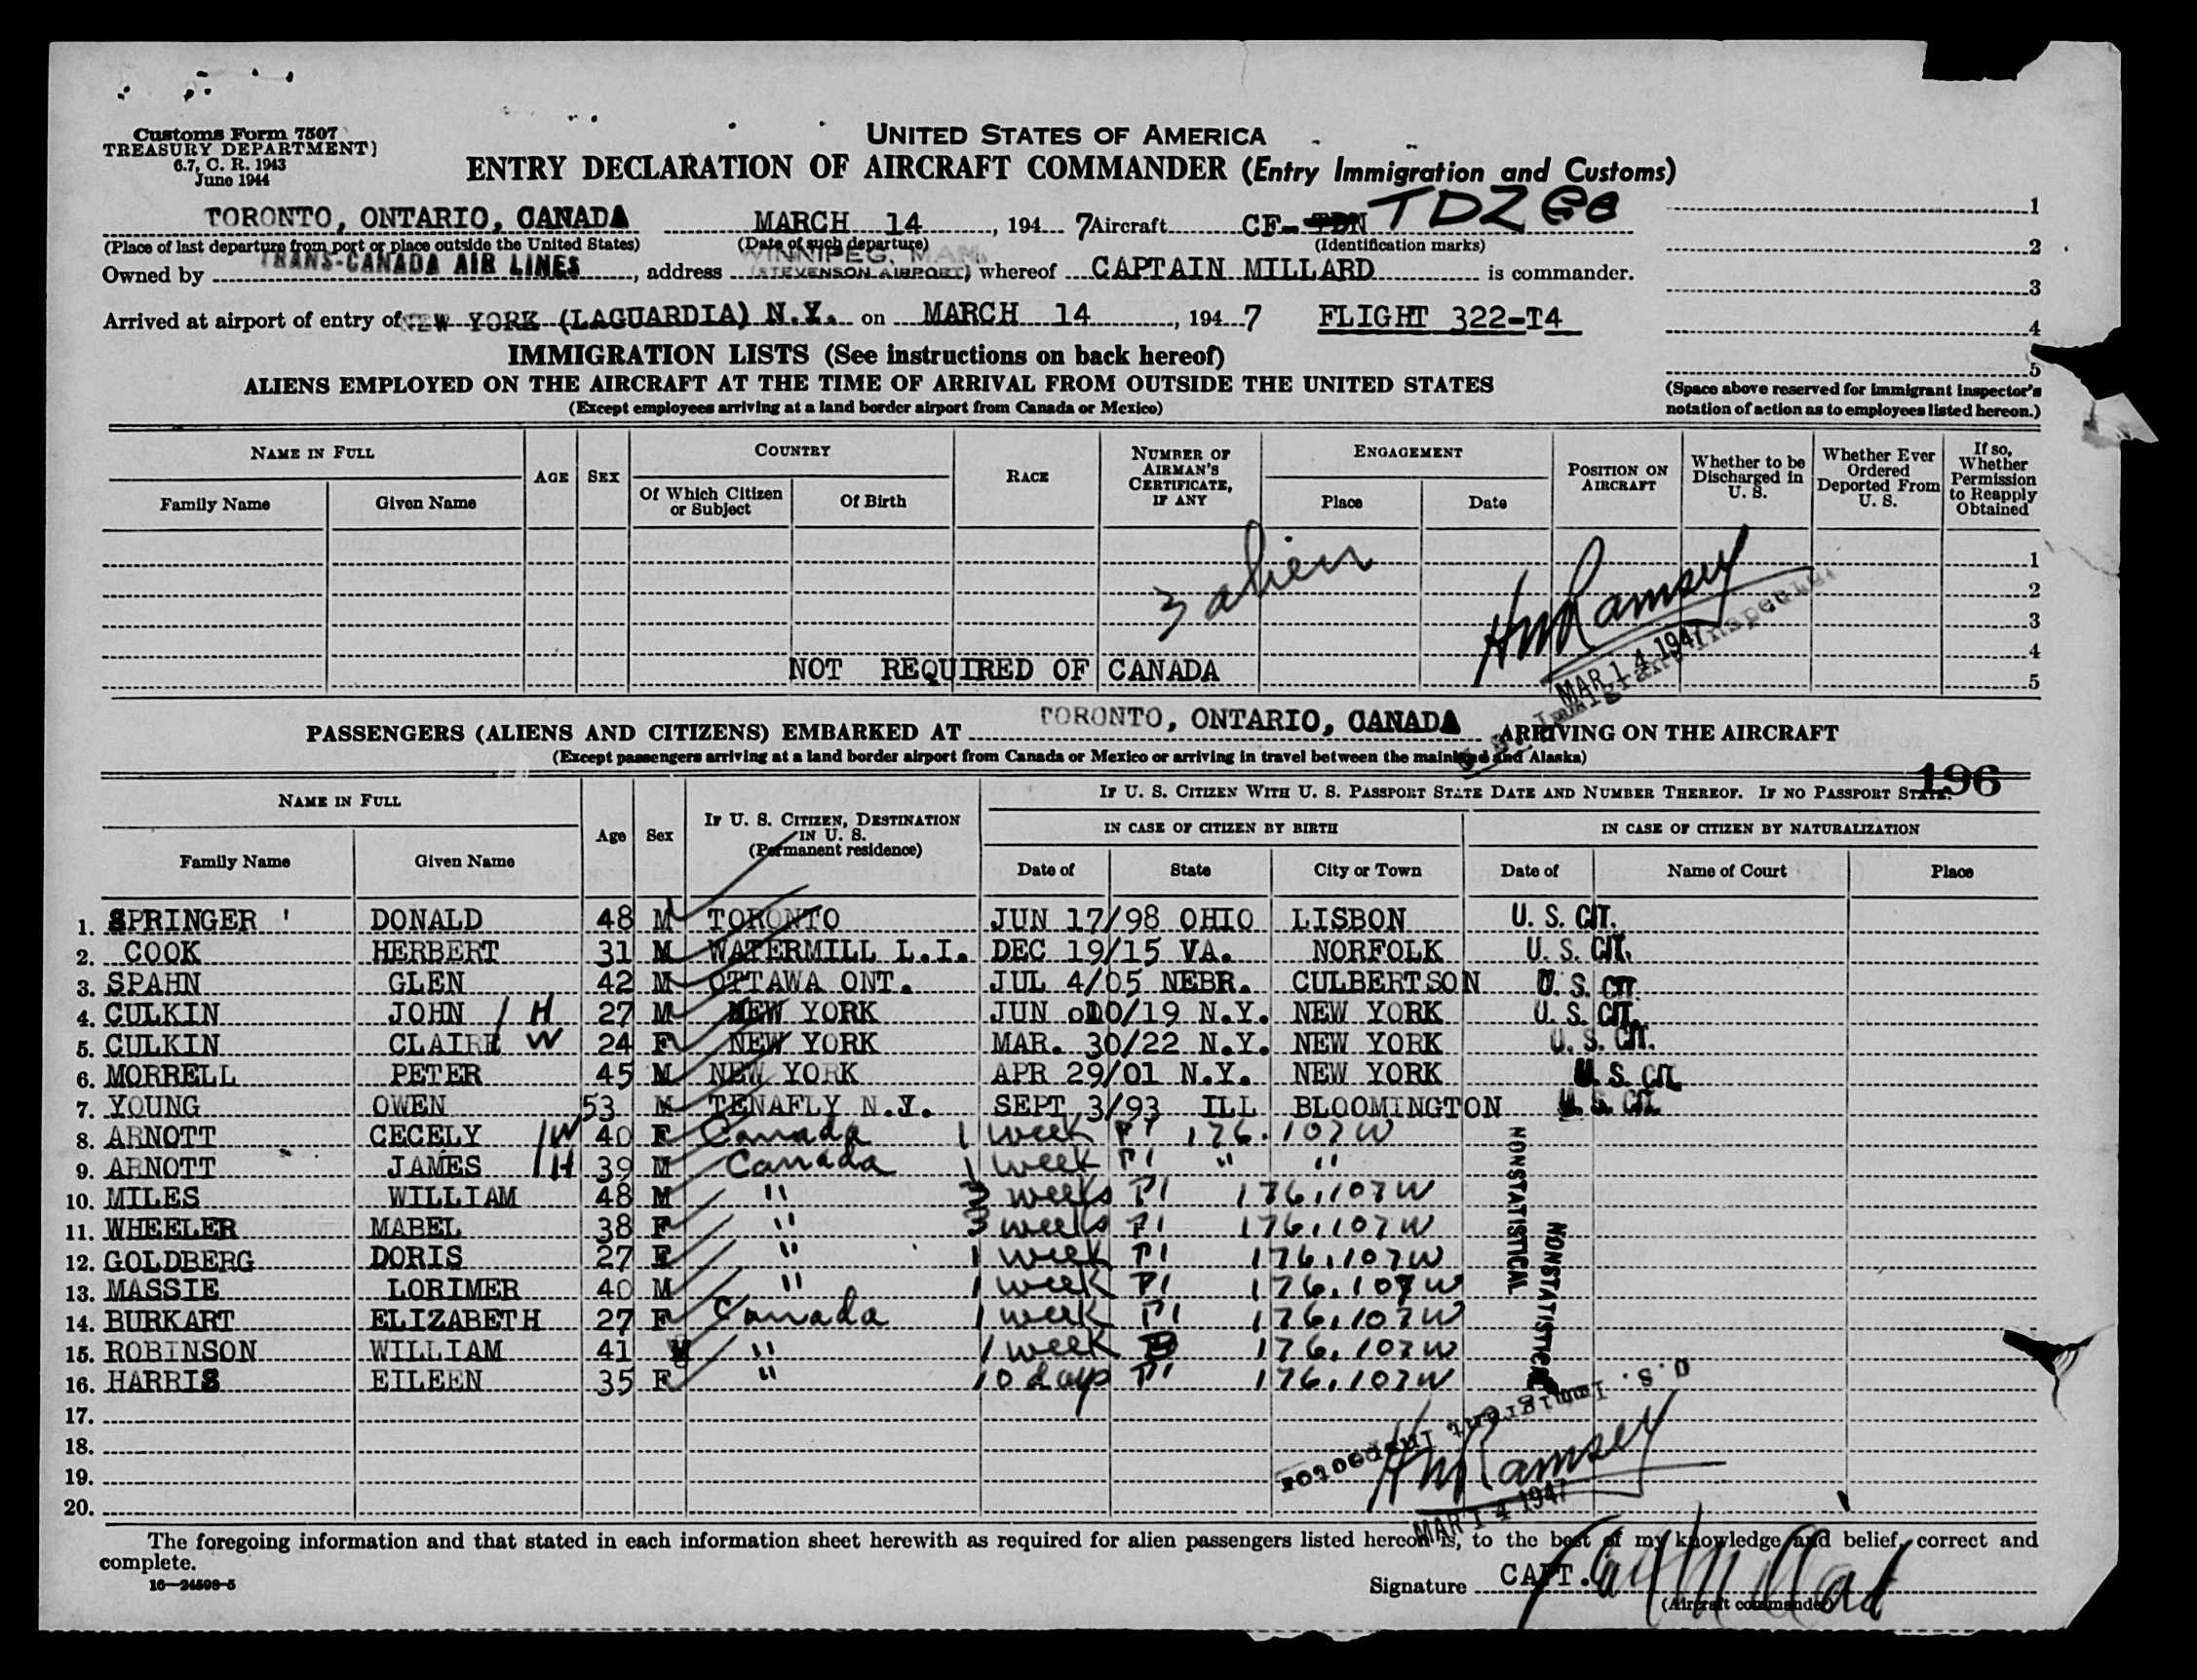 Customs Form 7507
TREASURY DEPARTMENT)
6.7, C. R. 1943
June 1944
UNITED STATES OF AMERICA
ENTRY DECLARATION OF AIRCRAFT COMMANDER (Entry Immigration and Customs)
TORONTO, ONTARIO, CANADA MARCH 14, 194 7 Aircraft CF- TDN TDZ
(Place of last departure from port or place outside the United States) (Date of such departure) (Identification marks)
WINNIPEG, MAN.
Owned by TRANS-CANADA AIR LINES, address (STEVENSON AIRPORT) whereof CAPTAIN MILLARD is commander.
Arrived at airport of entry of NEW YORK (LAGUARDIA) N.Y. on MARCH 14, 194 7 FLIGHT 322-T4
1
2
3
4
5
(Space above reserved for immigrant inspector's
notation of action as to employees listed hereon.)
IMMIGRATION LISTS (See instructions on back hereof)
ALIENS EMPLOYED ON THE AIRCRAFT AT THE TIME OF ARRIVAL FROM OUTSIDE THE UNITED STATES
(Except employees arriving at a land border airport from Canada or Mexico)
NAME IN FULL AGE SEX COUNTRY RACE NUMBER OF AIRMAN'S CERTIFICATE, IF ANY ENGAGEMENT POSITION ON AIRCRAFT Whether to be Discharged in U. S. Whether Ever Ordered Deported From U. S. If so, Whether Permission to Reapply Obtained
Family Name Given Name Of Which Citizen or Subject Of Birth Place Date
1
2
3
4
5
3 alien
HM Ramsey
MAR 14 1947
U. S. Immigrant Inspector
NOT REQUIRED OF CANADA
PASSENGERS (ALIENS AND CITIZENS) EMBARKED AT TORONTO, ONTARIO, CANADA ARRIVING ON THE AIRCRAFT
(Except passengers arriving at a land border airport from Canada or Mexico or arriving in travel between the mainland and Alaska)
196
NAME IN FULL Age Sex IF U. S. CITIZEN, DESTINATION IN U. S. (Permanent residence) IF U. S. CITIZEN WITH U. S. PASSPORT STATE DATE AND NUMBER THEREOF. IF NO PASSPORT STATE:
IN CASE OF CITIZEN BY BIRTH IN CASE OF CITIZEN BY NATURALIZATION
Family Name Given Name Date of State City or Town Date of Name of Court Place
1. SPRINGER DONALD 48 M TORONTO JUN 17/98 OHIO LISBON U. S. CIT.
2. COOK HERBERT 31 M WATERMILL L.I. DEC 19/15 VA. NORFOLK U. S. CIT.
3. SPAHN GLEN 42 M OTTAWA ONT. JUL 4/05 NEBR. CULBERTSON U. S. CIT.
4. CULKIN JOHN H 27 M NEW YORK JUN 10/19 N.Y. NEW YORK U. S. CIT.
5. CULKIN CLAIRE W 24 F NEW YORK MAR. 30/22 N.Y. NEW YORK U. S. CIT.
6. MORRELL PETER 45 M NEW YORK APR 29/01 N.Y. NEW YORK U. S. CIT.
7. YOUNG OWEN 53 M TENAFLY N.J. SEPT 3/93 ILL BLOOMINGTON U. S. CIT.
8. ARNOTT CECELY W 40 F Canada 1 week P1 176.107W
9. ARNOTT JAMES H 39 M Canada 1 week P1 " "
10. MILES WILLIAM 48 M " 3 weeks P1 176.107W
11. WHEELER MABEL 38 F " 3 weeks P1 176.107W
12. GOLDBERG DORIS 27 F " 1 week P1 176.107W
13. MASSIE LORIMER 40 M " 1 week P1 176.107W
14. BURKART ELIZABETH 27 F Canada 1 week P1 176.107W
15. ROBINSON WILLIAM 41 M " 1 week 176.107W
16. HARRIS EILEEN 35 F " 10 days P1 176.107W
NONSTATISTICAL
NONSTATISTICAL
17.
18.
19.
20.
U. S. Immigrant Inspector
HM Ramsey
MAR 14 1947
The foregoing information and that stated in each information sheet herewith as required for alien passengers listed hereon is, to the best of my knowledge and belief, correct and
complete.
16—24598-5
Signature CAPT. Millard
(Aircraft commander)